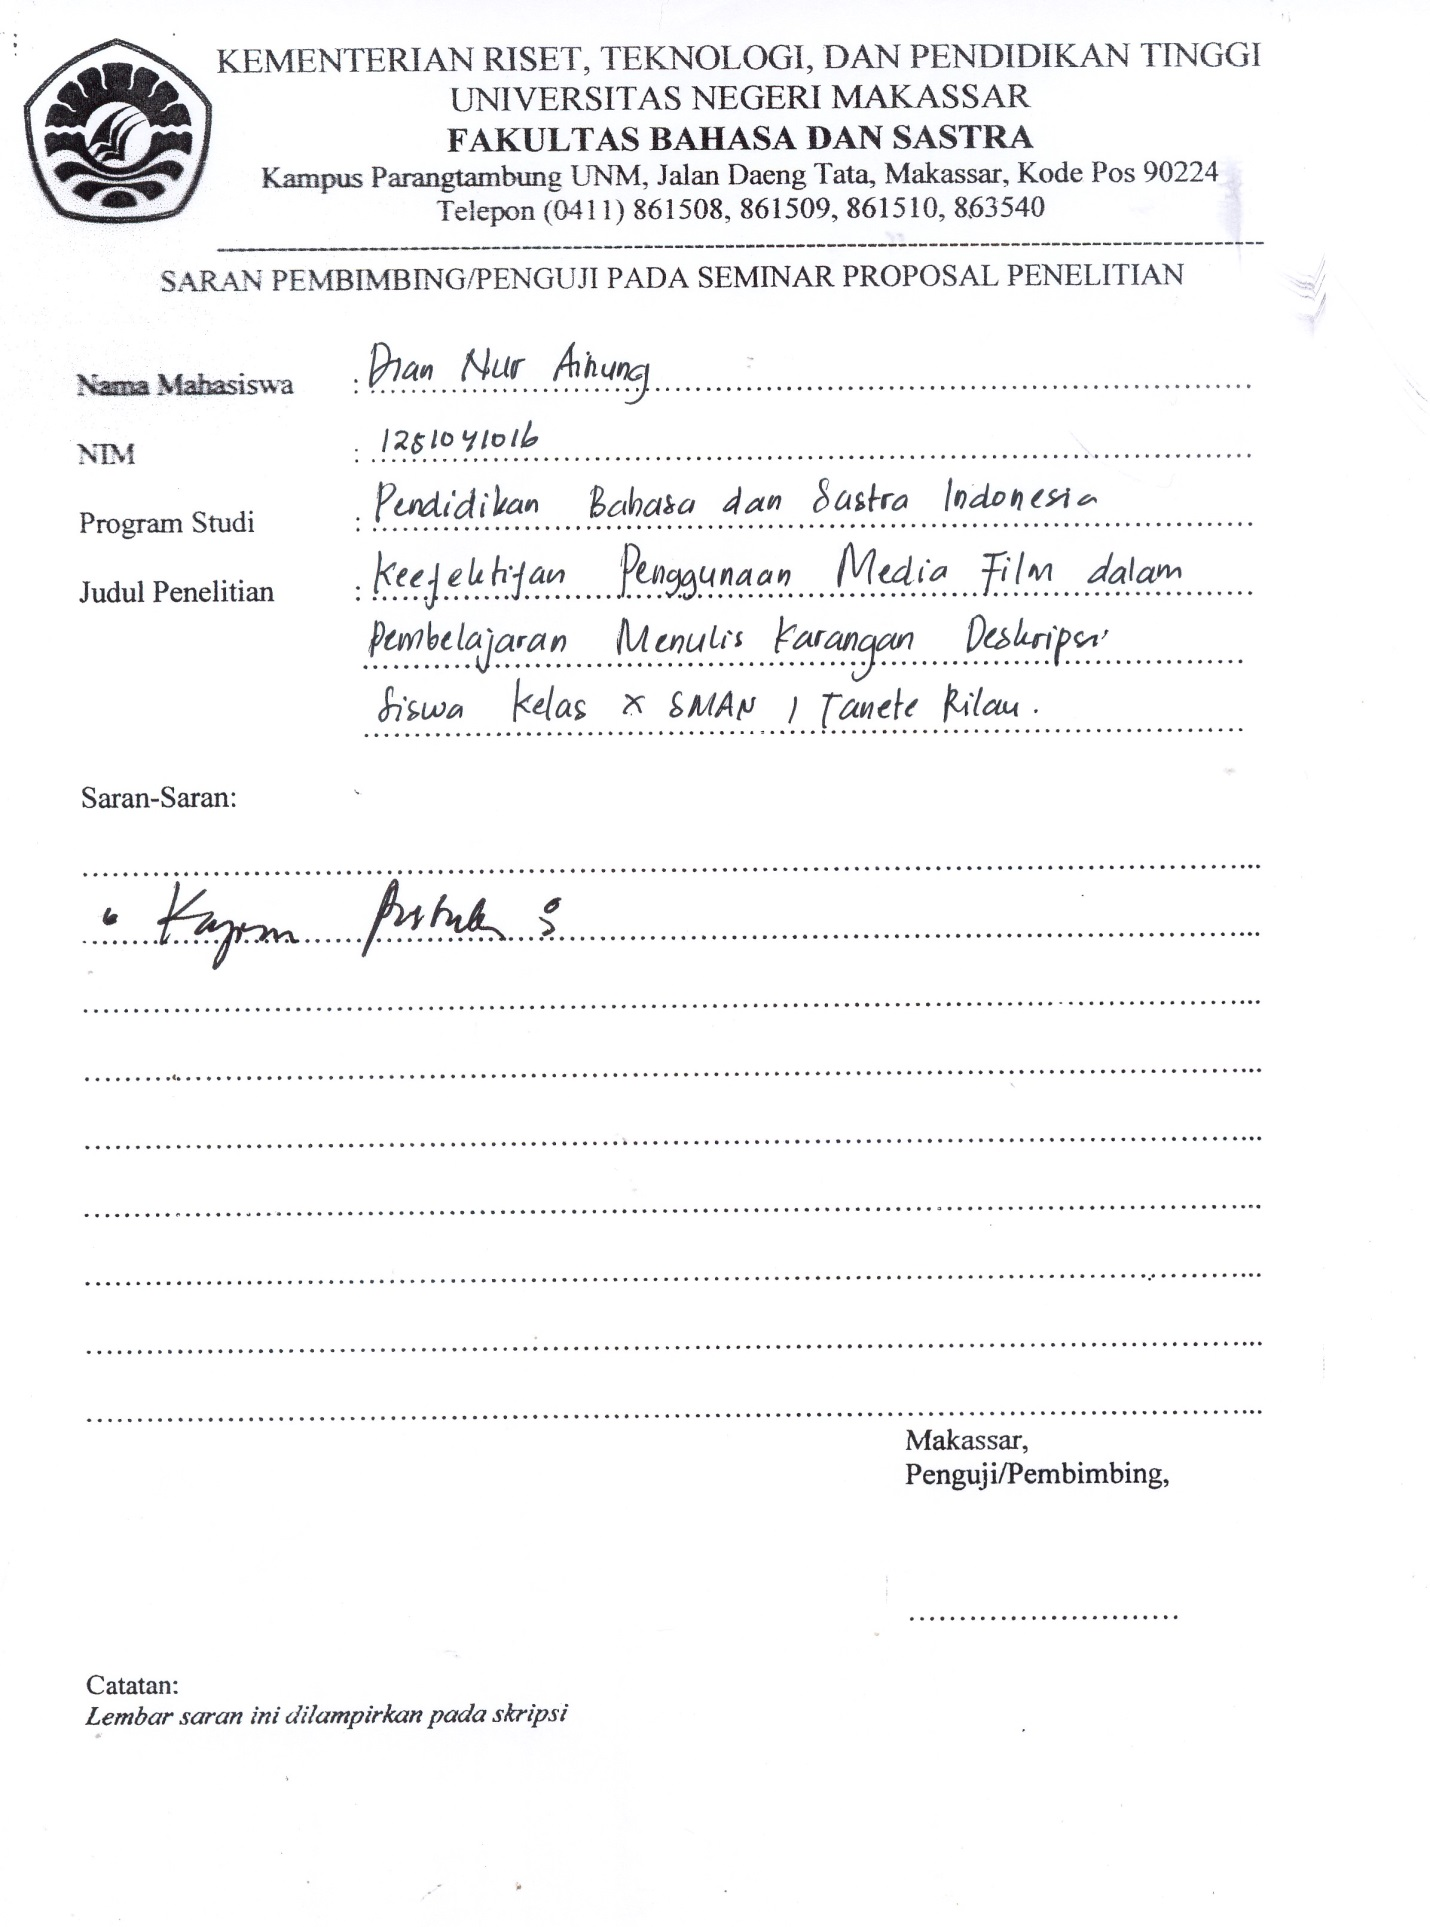 KEMENTERIAN RISET, TEKNOLOGI, DAN PENDIDIKAN TINGGI
UNIVERSITAS NEGERI MAKASSAR
FAKULTAS BAHASA DAN SASTRA
Kampus Parangtambung UNM, Jalan Daeng Tata, Makassar, Kode Pos 90224
Telepon (0411) 861508, 861509, 861510, 863540
SARAN PEMBIMBING/PENGUJI PADA SEMINAR PROPOSAL PENELITIAN
Nama Mahasiswa : Dian Nur
NIM : 1251041016
Program Studi : Pendidikan Bahasa dan Sastra Indonesia
Judul Penelitian : Keefektifan Penggunaan Media Film dalam
Pembelajaran Menulis Karangan Deskripsi
Siswa Kelas X SMAN 1 Tanete Rilau.
Saran-Saran:
Makassar,
Penguji/Pembimbing,
Catatan:
Lembar saran ini dilampirkan pada skripsi